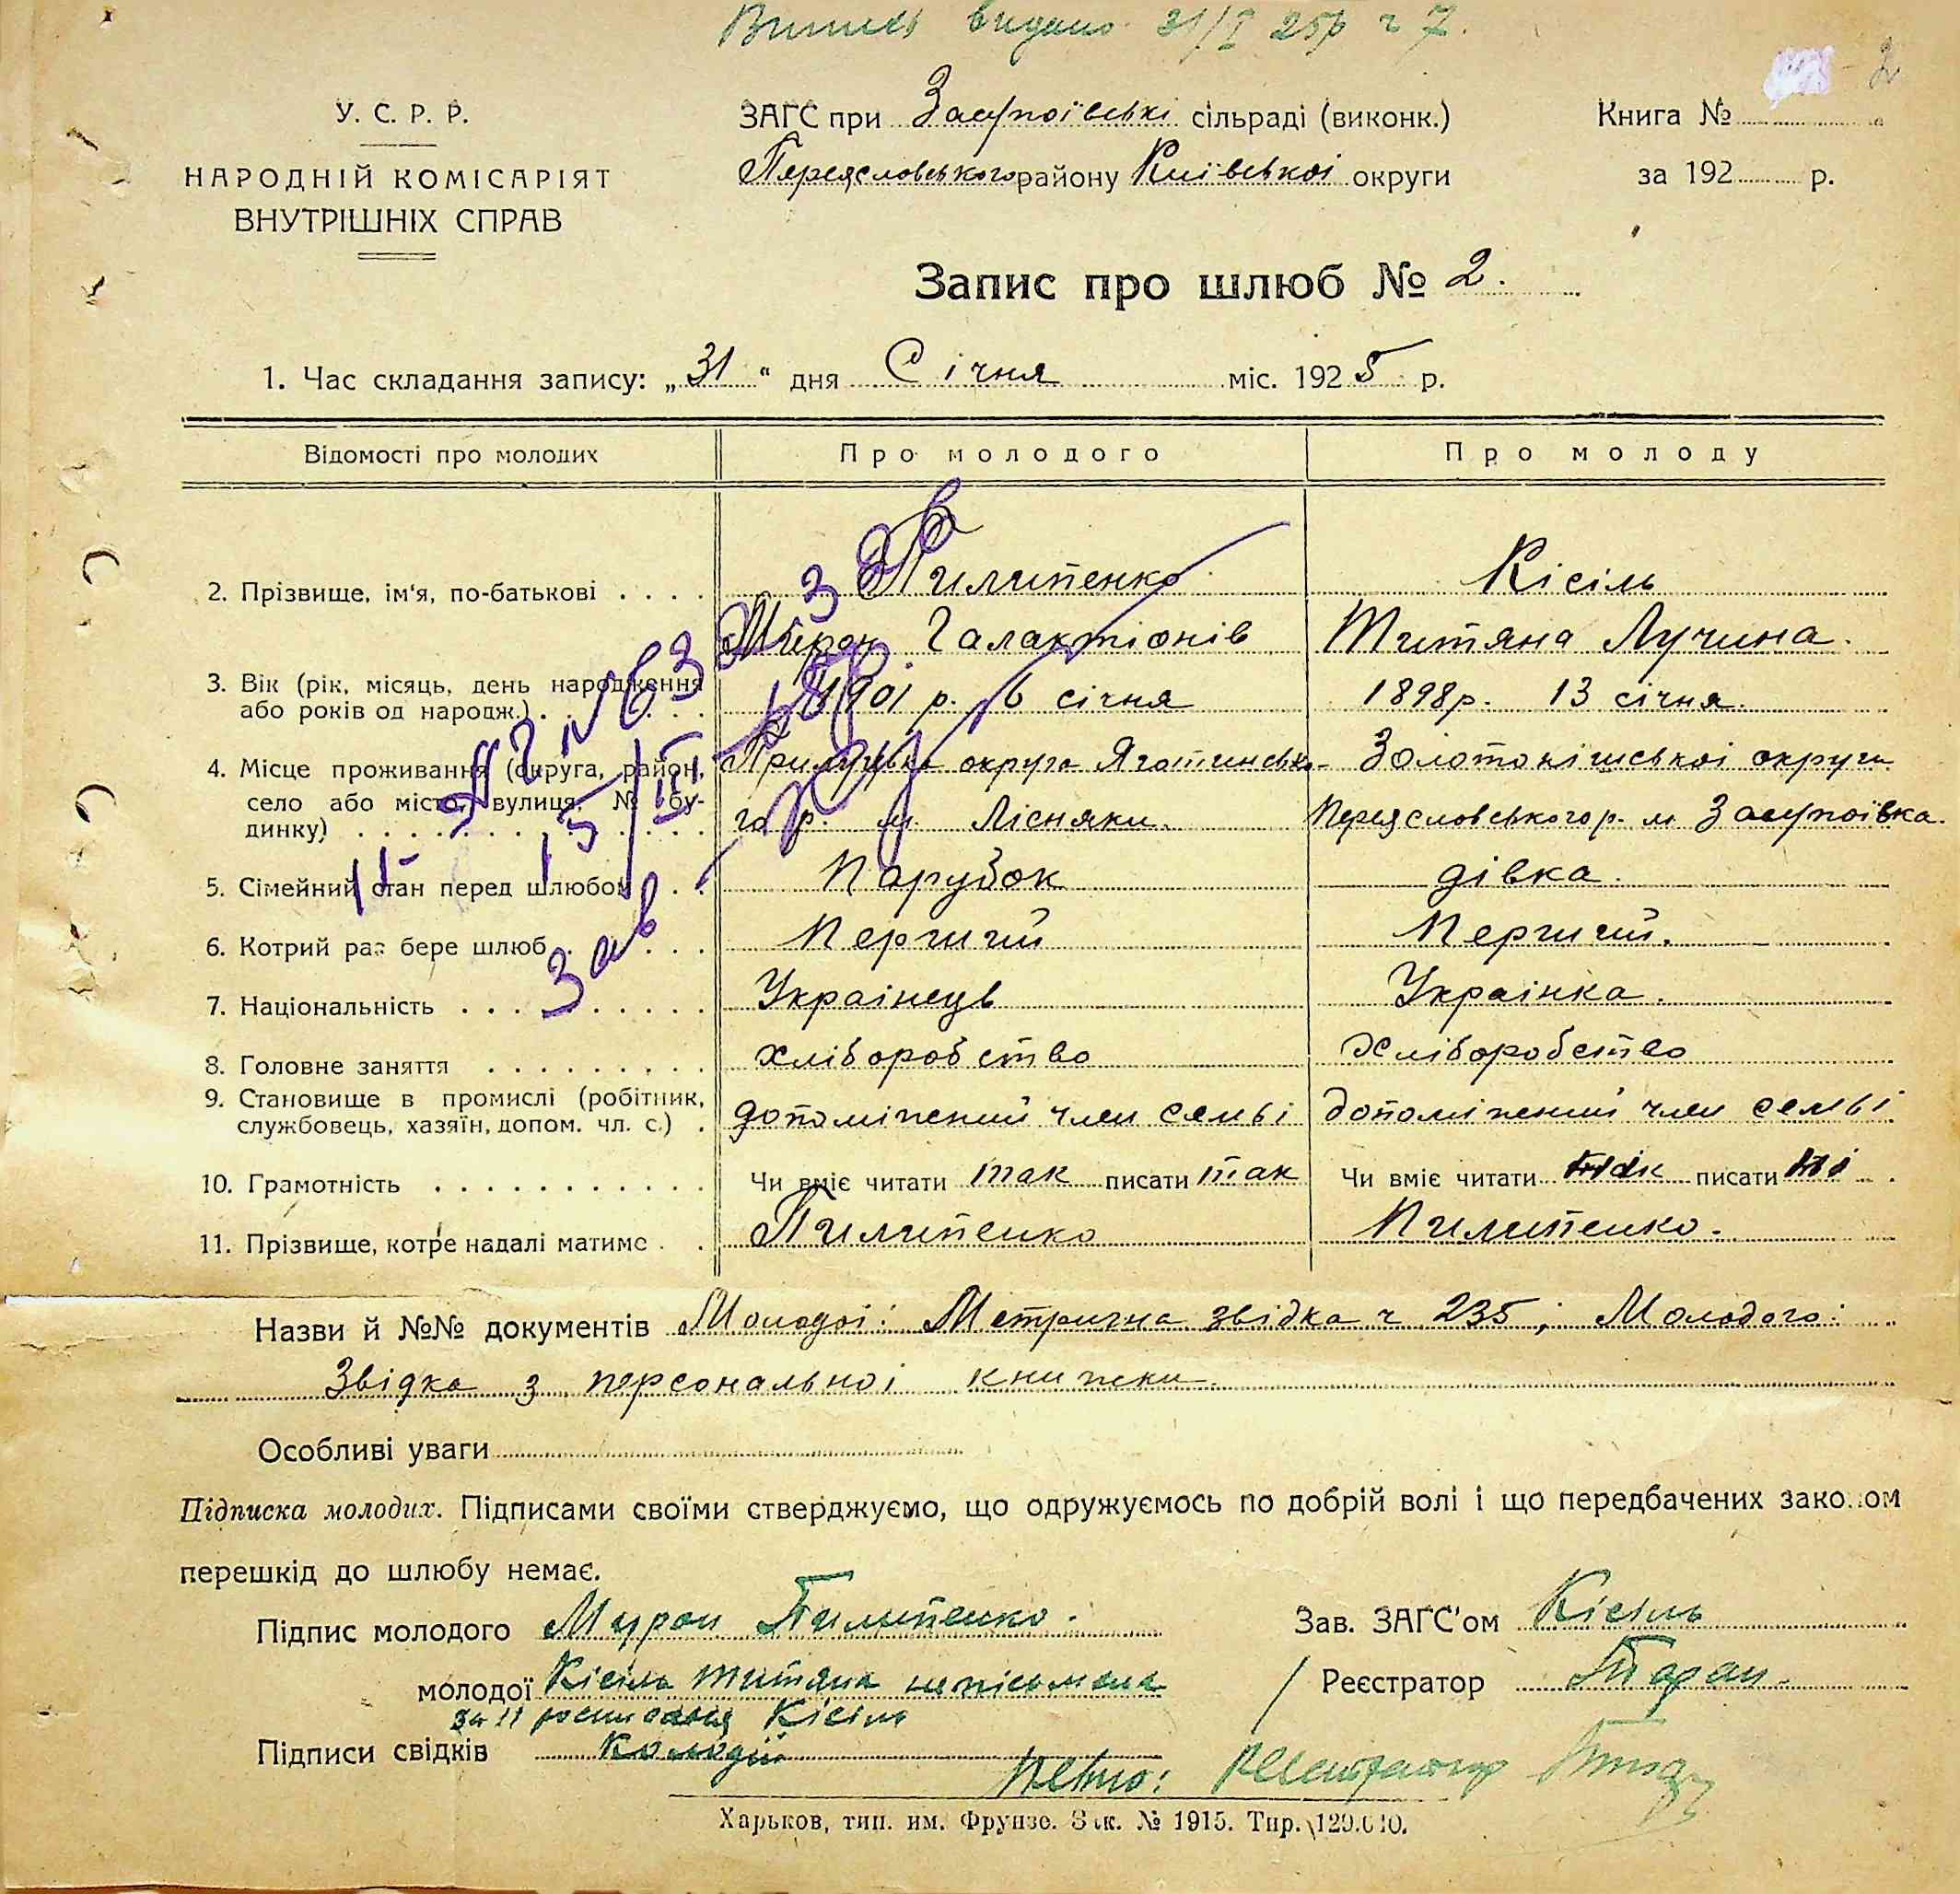 Випись видано 31/I 25р ч 7.
2
У. С. Р. Р.
НАРОДНІЙ КОМІСАРІЯТ
ВНУТРІШНІХ СПРАВ
ЗАГС при Засупоївські сільраді (виконк.)
Переясловського району Київської округи
Книга №
за 192 р.
Запис про шлюб № 2.
1. Час складання запису: „31“ дня Січня міс. 1925 р.
Відомості про молодих Про молодого Про молоду
2. Прізвище, ім'я, по-батькові . . . . Пилипенко Кісіль
Мирон Галактіонів Титяна Лучина.
3. Вік (рік, місяць, день народження 1901 р. 6 січня 1898р. 13 січня.
або років од народж.) . . . . .
4. Місце проживання (округа, район, Прилуцька округа Яготинсько- Золотонішськоі округи
село або місто, вулиця, № бу- го р. м. Лісняки. Переясловського р. м Засупоівка.
динку) . . . . . . . . . . . .
5. Сімейний стан перед шлюбом . . Парубок дівка.
6. Котрий раз бере шлюб . . . . Перший Перший.
7. Національність . . . . . . . . . Украінець Украінка.
8. Головне заняття . . . . . . . . . хліборобство Хліборобство
9. Становище в промислі (робітник, допоміжний член семьі допоміжний член семьі
службовець, хазяїн, допом. чл. с.) .
10. Грамотність . . . . . . . . . . . Чи вміє читати так писати так Чи вміє читати так писати ні
11. Прізвище, котре надалі матиме . . Пилипенко Пилипенко.
Назви й №№ документів Молодоі: Метрична звідка ч 235; Молодого:
Звідка з персональноі книжки.
Особливі уваги
Підписка молодих. Підписами своїми стверджуємо, що одружуємось по добрій волі і що передбачених законом
перешкід до шлюбу немає.
Підпис молодого Мирон Пилипенко.
Зав. ЗАГС'ом Кісіль
молодої Кісіль Титяна неписьмена
за її росписався Кісіль
Реєстратор
Підписи свідків Колодій
Вірно: Реєстратор
Харьков, тип. им. Фрунзе. Зак. № 1915. Тир. 120.000.